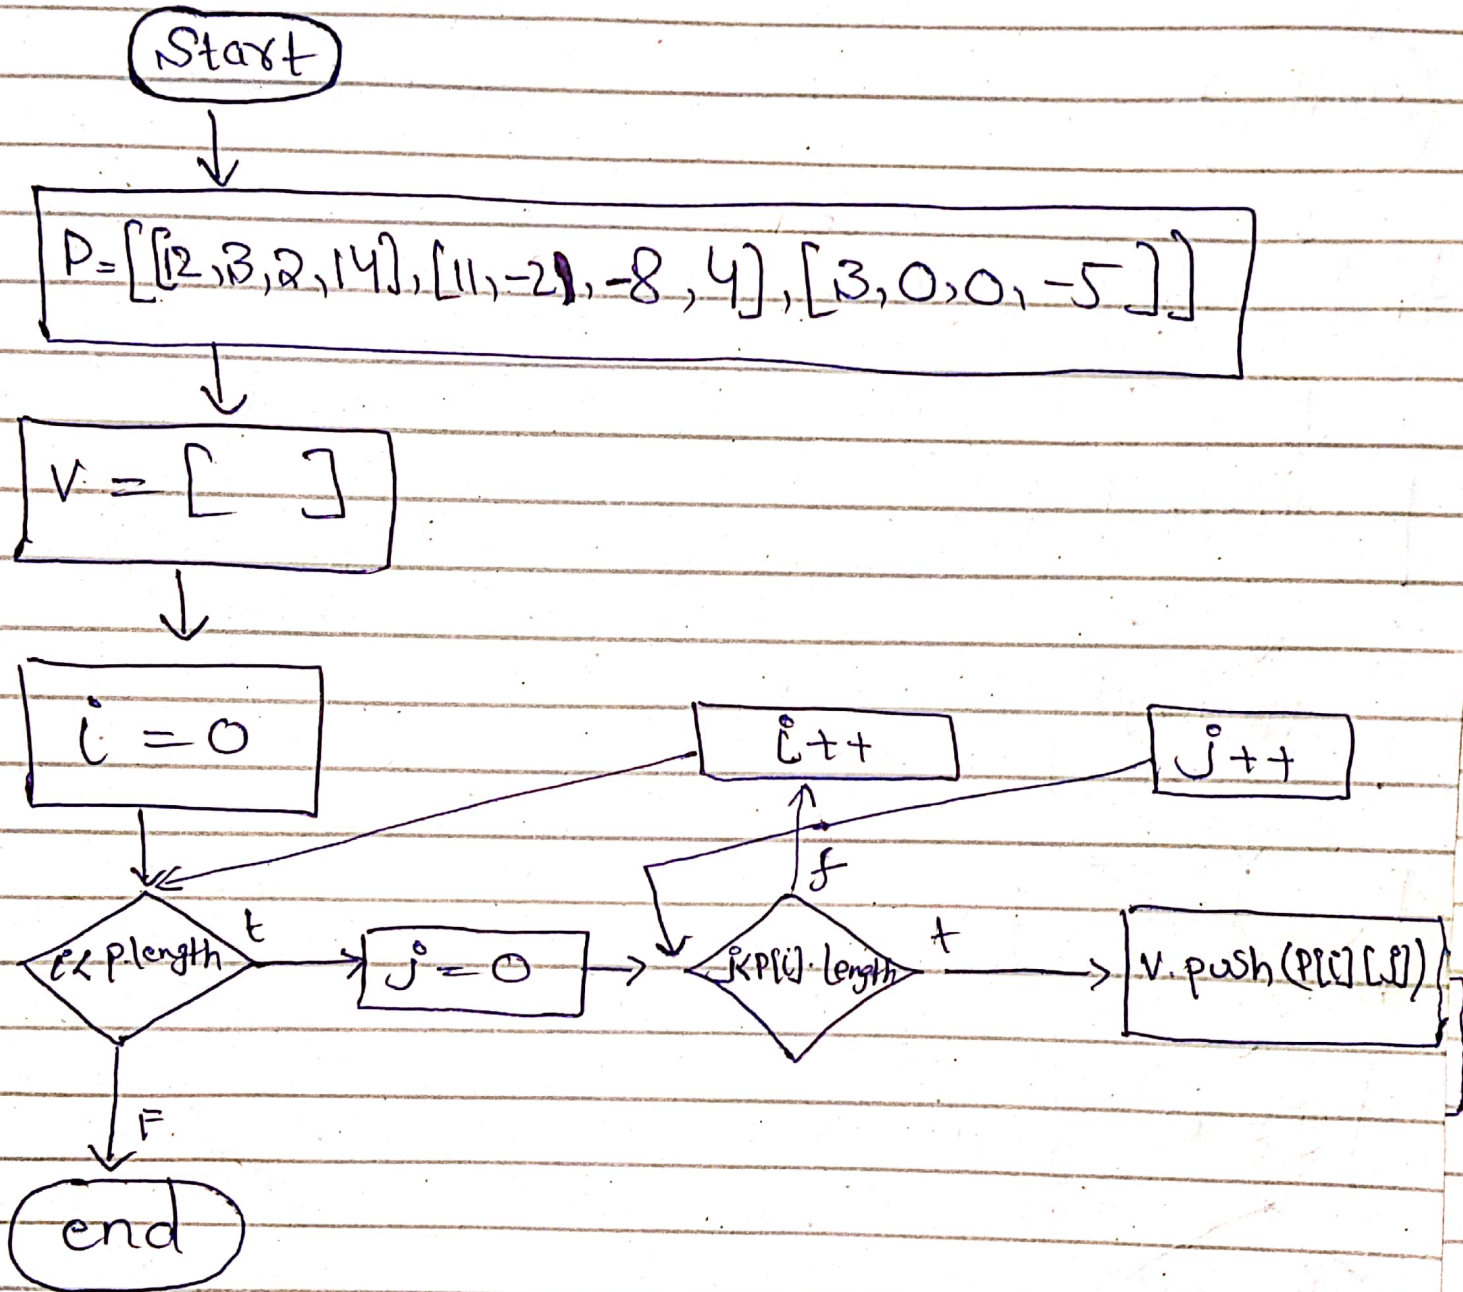 Start
P=[[12,3,2,14],[11,-21,-8,4],[3,0,0,-5]]
V = [ ]
i = 0
i++
j++
f
t
t
i< P.length
j = 0
j<P[i].length
V.push(P[i][j])
F
end